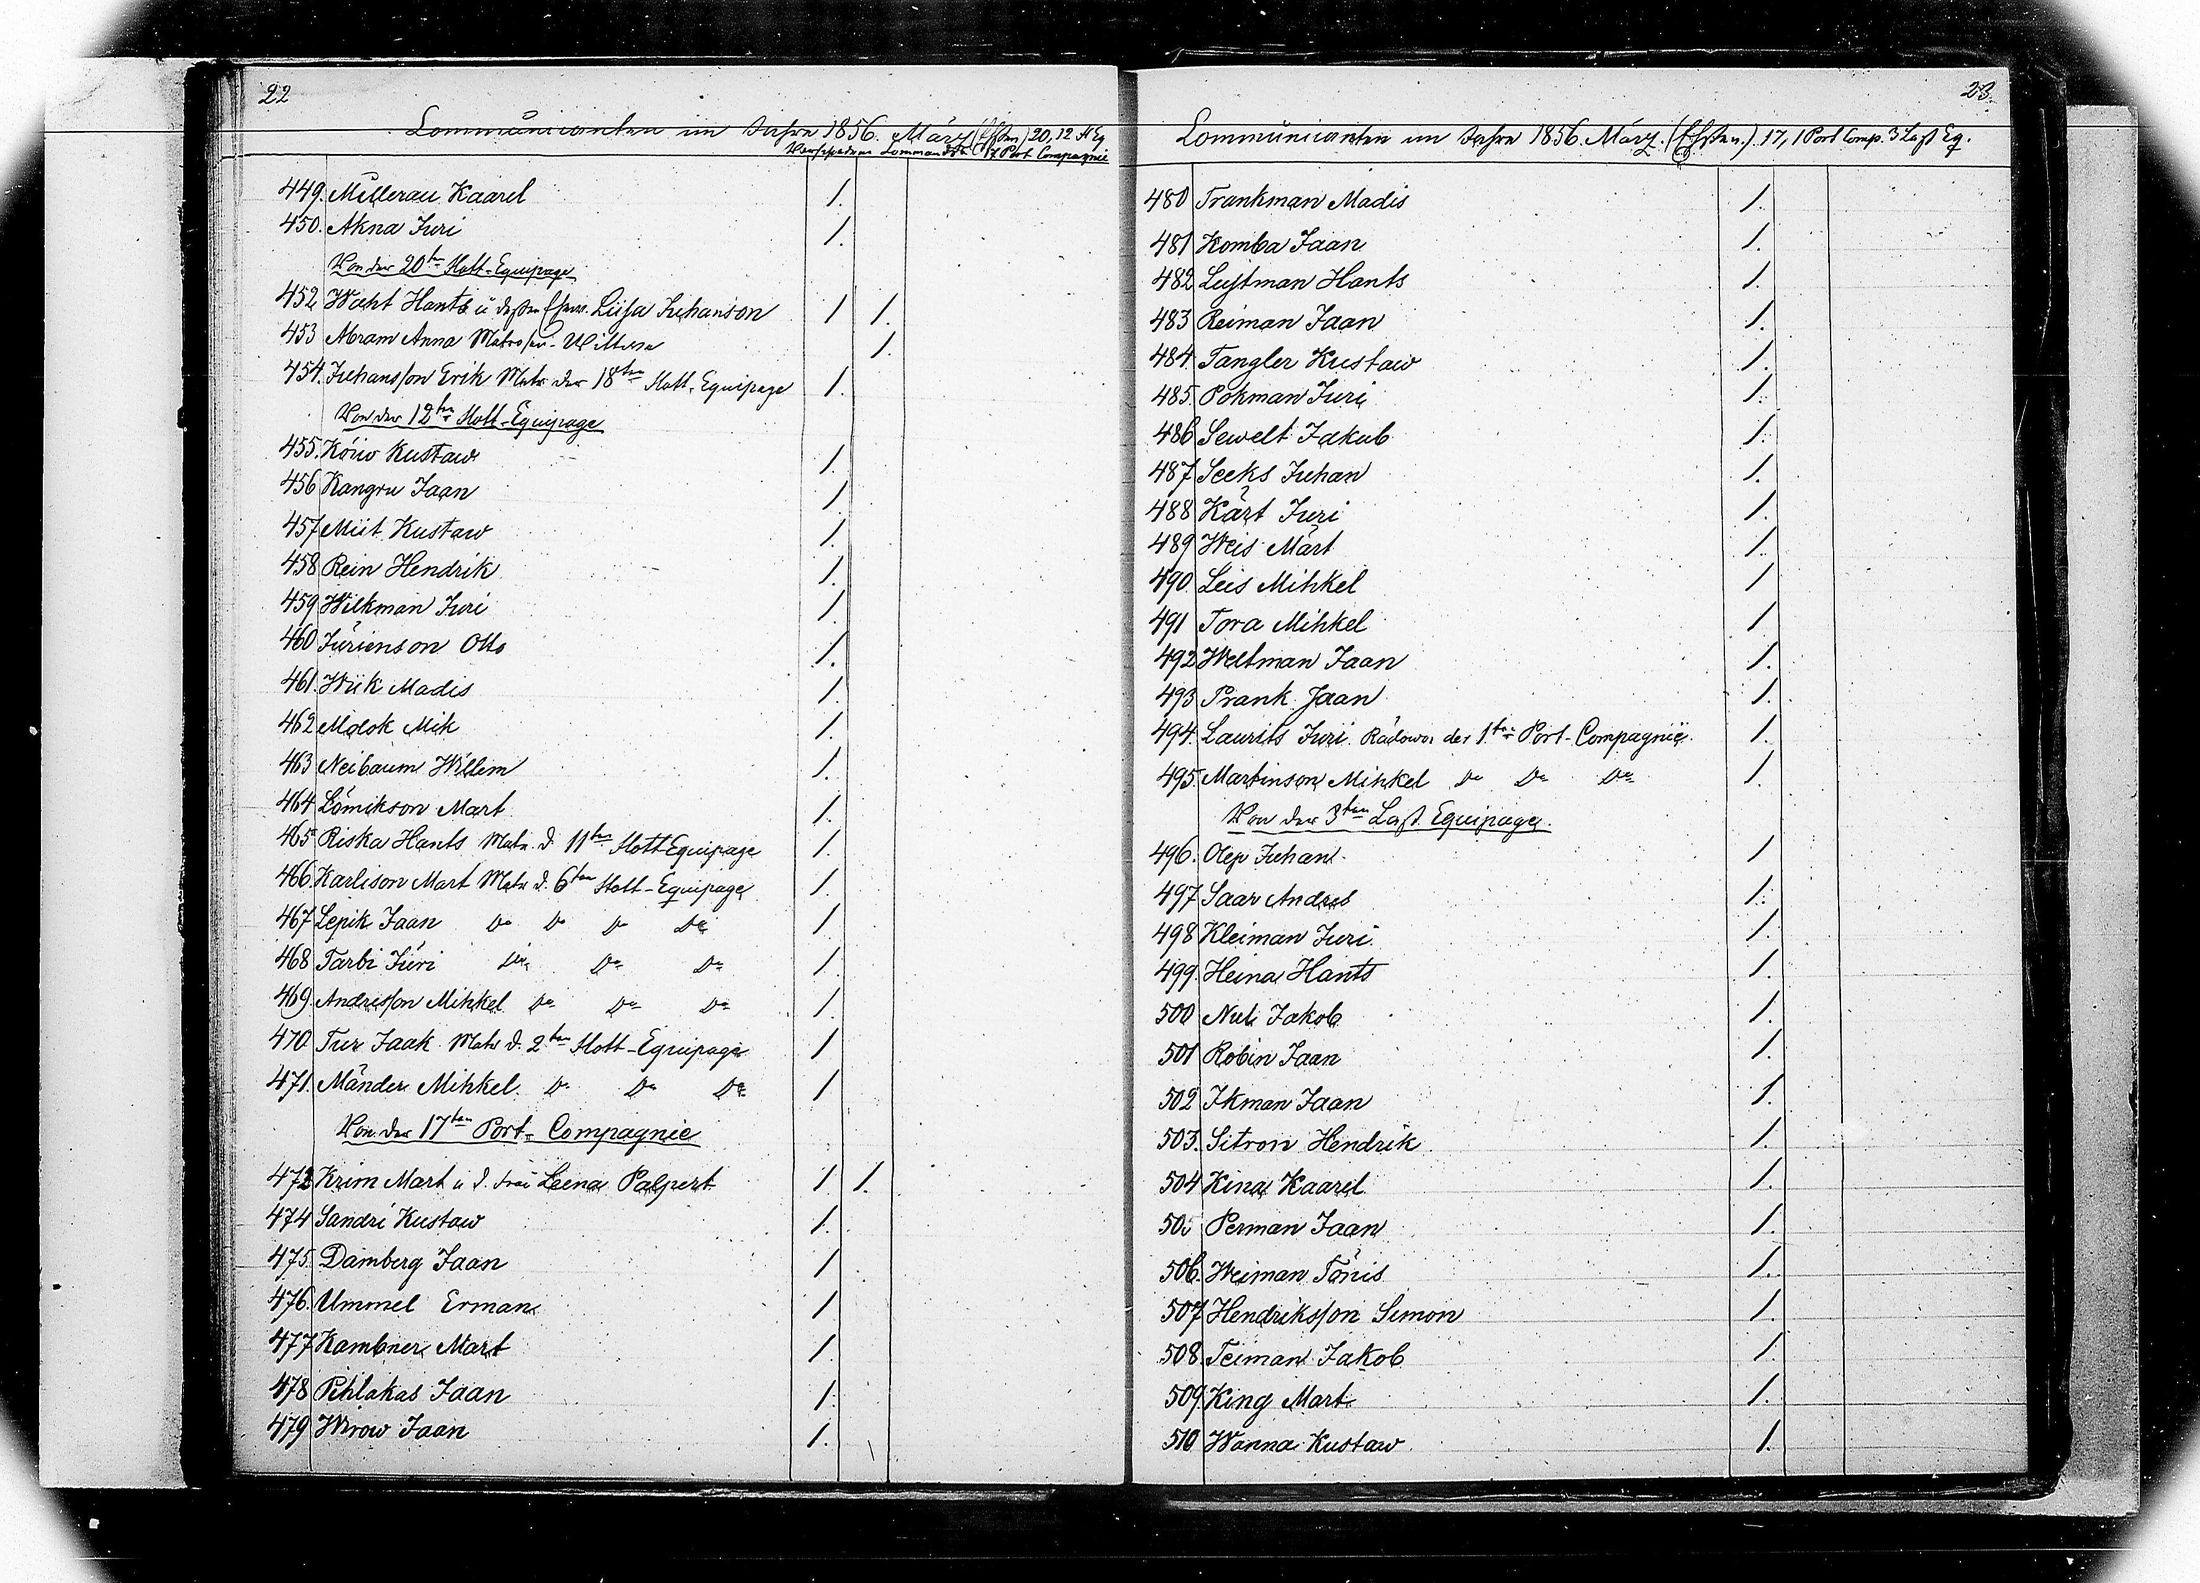 22
Communicanten im Jahre 1856. März (Ehsten) 20, 12 Fl Eq
Verschiedene Commandos 17 Port Compagnie
449. Millerau Kaarel 1.
450. Akna Juri 1.
Von der 20ten Flott-Equipage
452 Waht Hants u dessen Ehew. Liisa Juhanson 1 1.
453 Abram Anna Matrosen-Wittwe 1.
454. Juhansson Erik Matr der 18ten Flott. Equipage 1.
Von der 12ten Flott-Equipage
455. Kõiw Kustaw 1.
456 Kangru Jaan 1
457 Miit Kustaw 1.
458 Rein Hendrik 1.
459 Wilkman Juri 1
460 Jürienson Otto 1.
461. Wiik Madis 1.
462 Molok Mik 1.
463 Neibaum Willem 1.
464 Lõmikson Mart 1.
465 Riska Hants Matr. d. 11ten Flott Equipage 1.
466. Karlison Mart Matr d. 6ten Flott-Equipage 1.
467 Lepik Jaan Do Do Do Do 1
468 Tarbi Jüri Do Do Do 1.
469. Andresson Mihkel Do Do Do 1.
470. Tur Jaak Matr d. 2ten Flott-Equipage 1
471. Mänder Mihkel. Do Do Do 1
Von der 17ten Port-Compagnie
472 Krim Mart u d. Frau Leena Palpert 1. 1.
474 Sandri Kustaw 1.
475. Damberg Jaan 1
476. Ummel Erman 1
477 Kambner Mart 1.
478 Pihlakas Jaan 1.
479 Wirow Jaan 1.
23.
Communicanten im Jahre 1856. März. (Ehsten.) 17, 1 Port Comp. 3 Last Eq.
480 Trankman Madis 1.
481 Komba Jaan 1.
482 Lustman Hants 1.
483 Reiman Jaan 1.
484. Tangler Kustaw 1.
485. Pokman Juri 1.
486 Sewelt Jakub 1.
487 Seeks Juhan 1.
488 Kärt Juri 1.
489 Weis Märt 1.
490. Leis Mihkel 1
491 Tora Mihkel 1
492 Weltman Jaan 1.
493 Prank Jaan 1.
494. Laurits Juri. Rädowoi der 1ten Port-Compagnie. 1.
495. Martinson Mihkel Do Do Do 1.
Von der 3ten Last Equipage.
496. Olep Juhan. 1
497 Saar Andres 1.
498 Kleiman Juri. 1.
499. Heina Hants 1.
500 Nuti Jakob 1.
501 Robin Jaan 1.
502 Ikman Jaan 1.
503. Sitron Hendrik 1.
504 Kina Kaarel 1.
505 Perman Jaan 1.
506. Weiman Tõnis 1.
507 Hendriksson Simon 1.
508. Teiman Jakob 1.
509. King Mart 1.
510 Wanna Kustaw. 1.